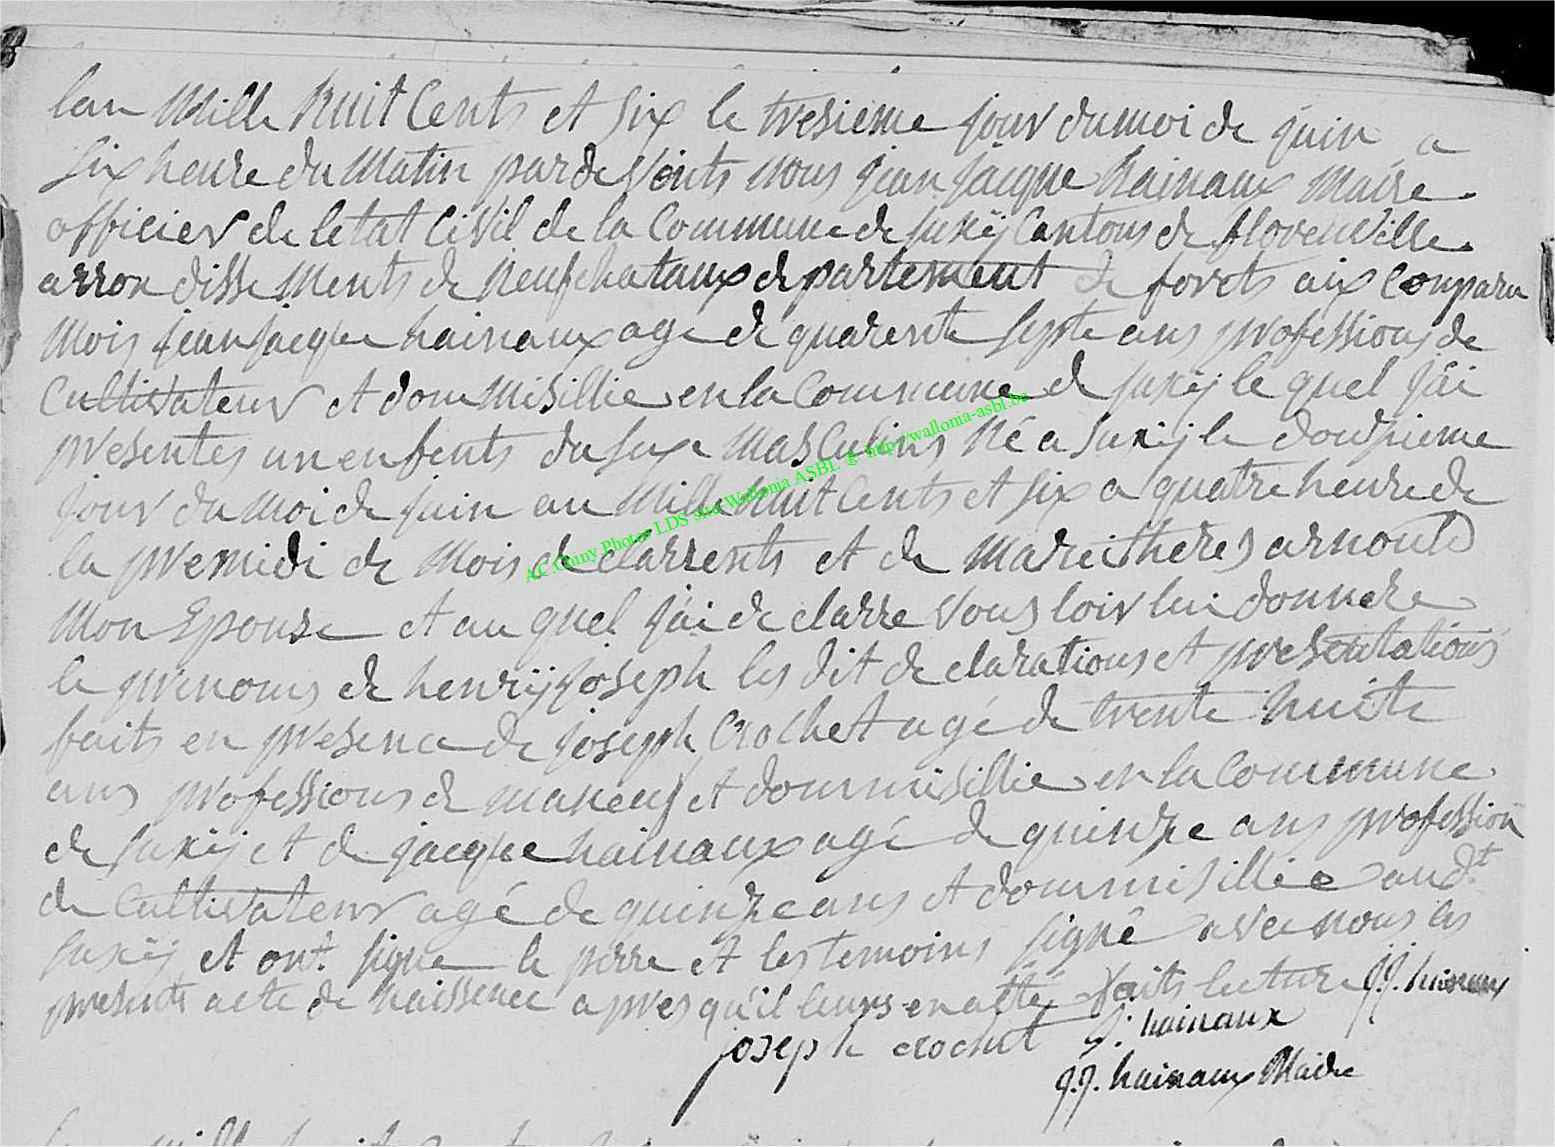 lan Mille huit Cents et six le tresieme jour du moi de juin a
six heure du Matin par de Vents nous jean jacque hainaux Maire
officier de letat Civil de la Commune de suxÿ Cantons de florenville
arron disse Ments de Neufchataux departement de forets aix Conparu
Mois jean jacque hainaux age de quarente septe ans professions de
Cultivateur et dom Misillie en la Commune de suxÿ le quel jai
presentes un enfents du sexe Masculins Né a suxij le doudzieme
jour du Moi de juin an Mille huit Cents et six a quatre heure de
la premidi de Mois de clarrents et de Marei theres arnould
Mon Epouse et au quel jai de clarre Vous loir lui donnere
le prenoms de henrÿ joseph les dit de clarations et presentations
faits en presence de joseph Crochet agé de trente huite
ans professions de maneuf et dommisillie en la Commune
de suxij et de jacque hainaux agé de quindze ans profession
de Cultivateur agé de quindze ans et dommisillie audt
suxÿ et ont signe le perre et les temoins signé avec nous les
presents acte de Naissence apres qu'il leurs en atté faits lecture J.J. hainaux
joseph crochet J: hainaux
J.J. hainaux Maire
AE Chiny Photos LDS Site Wallonia ASBL © http://wallonia-asbl.be